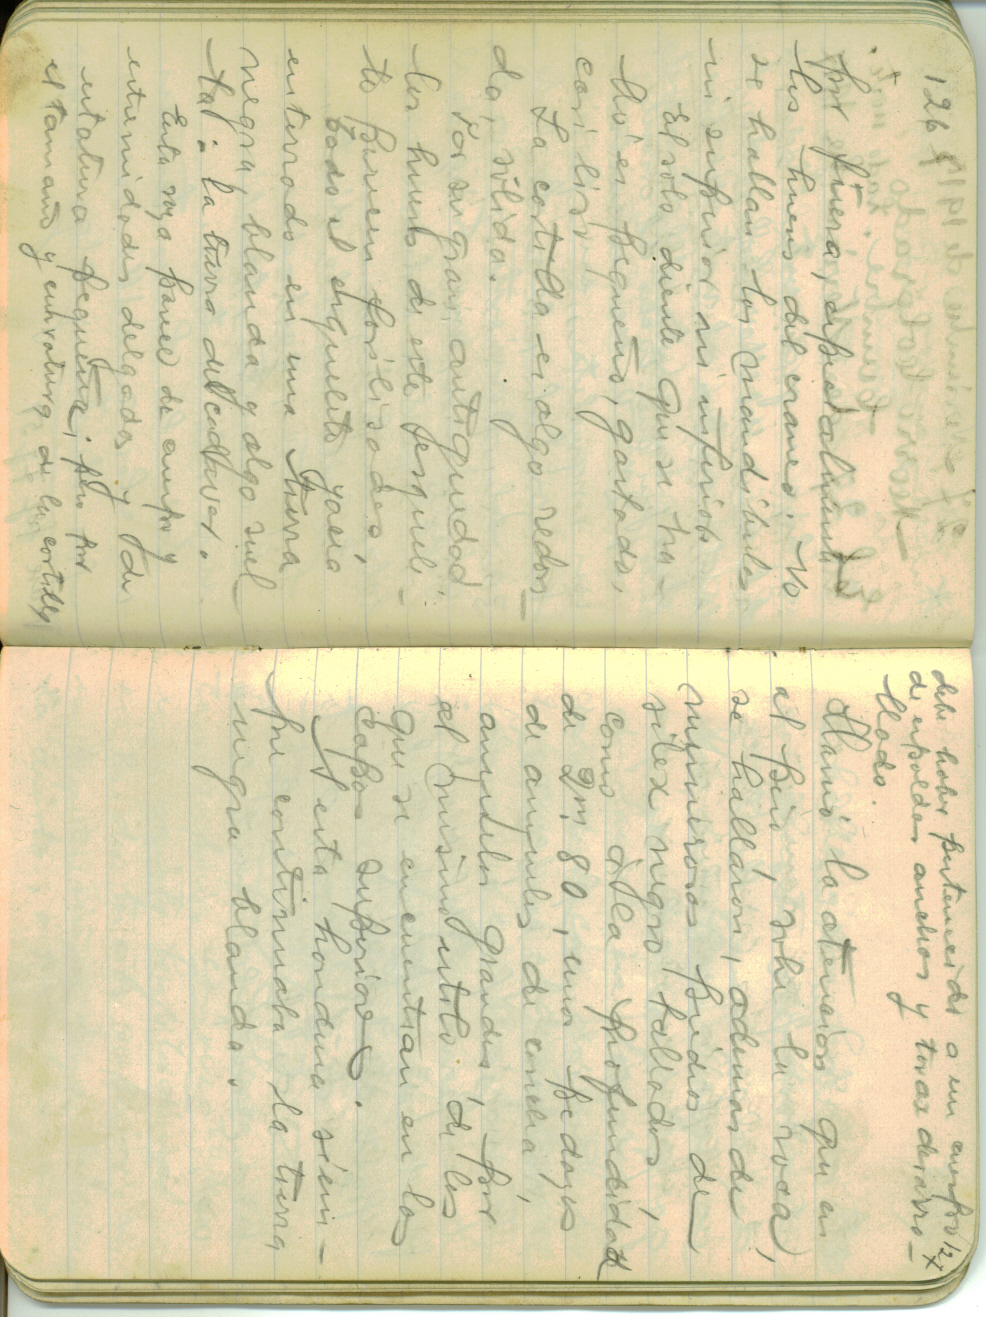 126
por fuera, especialmente
los huesos del craneo. No
se hallan las mandibulas
ni superior ni inferior.
El solo diente que se ha-
lló es pequeño, gastado,
casi liso.
La costilla es algo redon-
da, sólida.
Por su gran antiguedad
los huesos de este esquele-
to parecen fosilizados,
todo el esqueleto yacía
enterrado en una tierra
negra, blanda y algo suel
ta: la tierra del cadaver.
Esta raza parece de cuerpo y
extremidades delgadas y de
estatura pequeña; pero por
el tamaño y curvatura de las costillas
127
debe haber pertenecido a un cuerpo
de espaldas anchas y torax desarro-
llado.
Llamó la atencion que en
el piso, sobre la roca,
se hallaron, ademas de
numerosas piedras de
silex negro, talladas,
como á la profundidad
de 2m, 80, unos pedazos
de anzuelos de concha,
anzuelos grandes, por
el mismo estilo de los
que se encuentran en las
capas superiores.
A esta hondura siem-
pre continuaba la tierra
negra blanda.